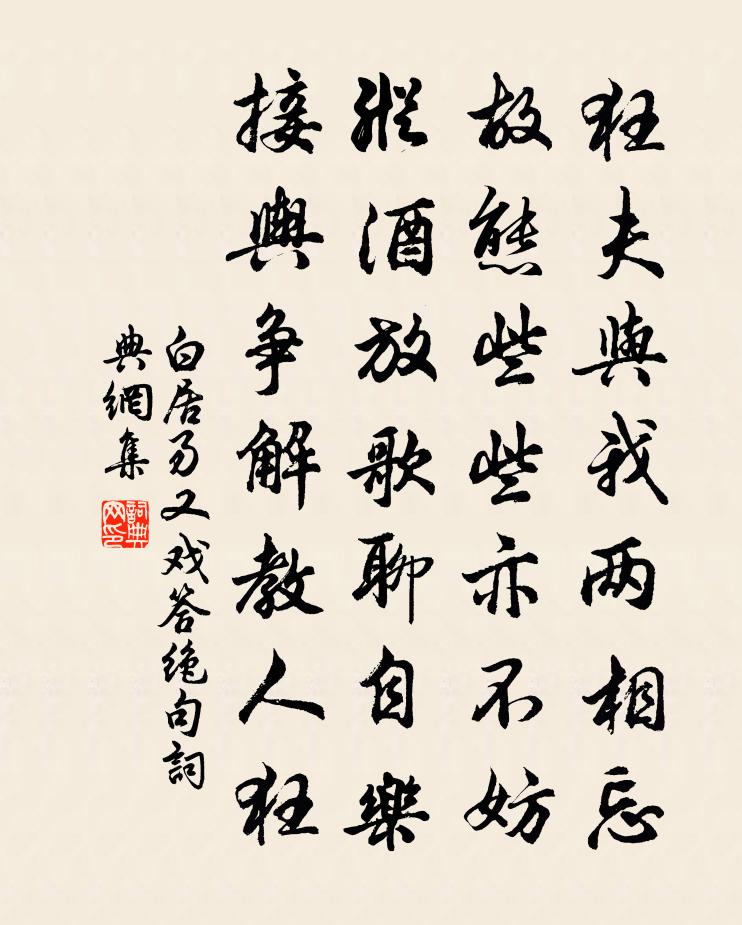 狂夫與我两相忘
故態些些亦不妨
縱酒放歌聊自樂
接輿争解教人狂
白居易又戏答绝句詞
典網集
詞典
网印